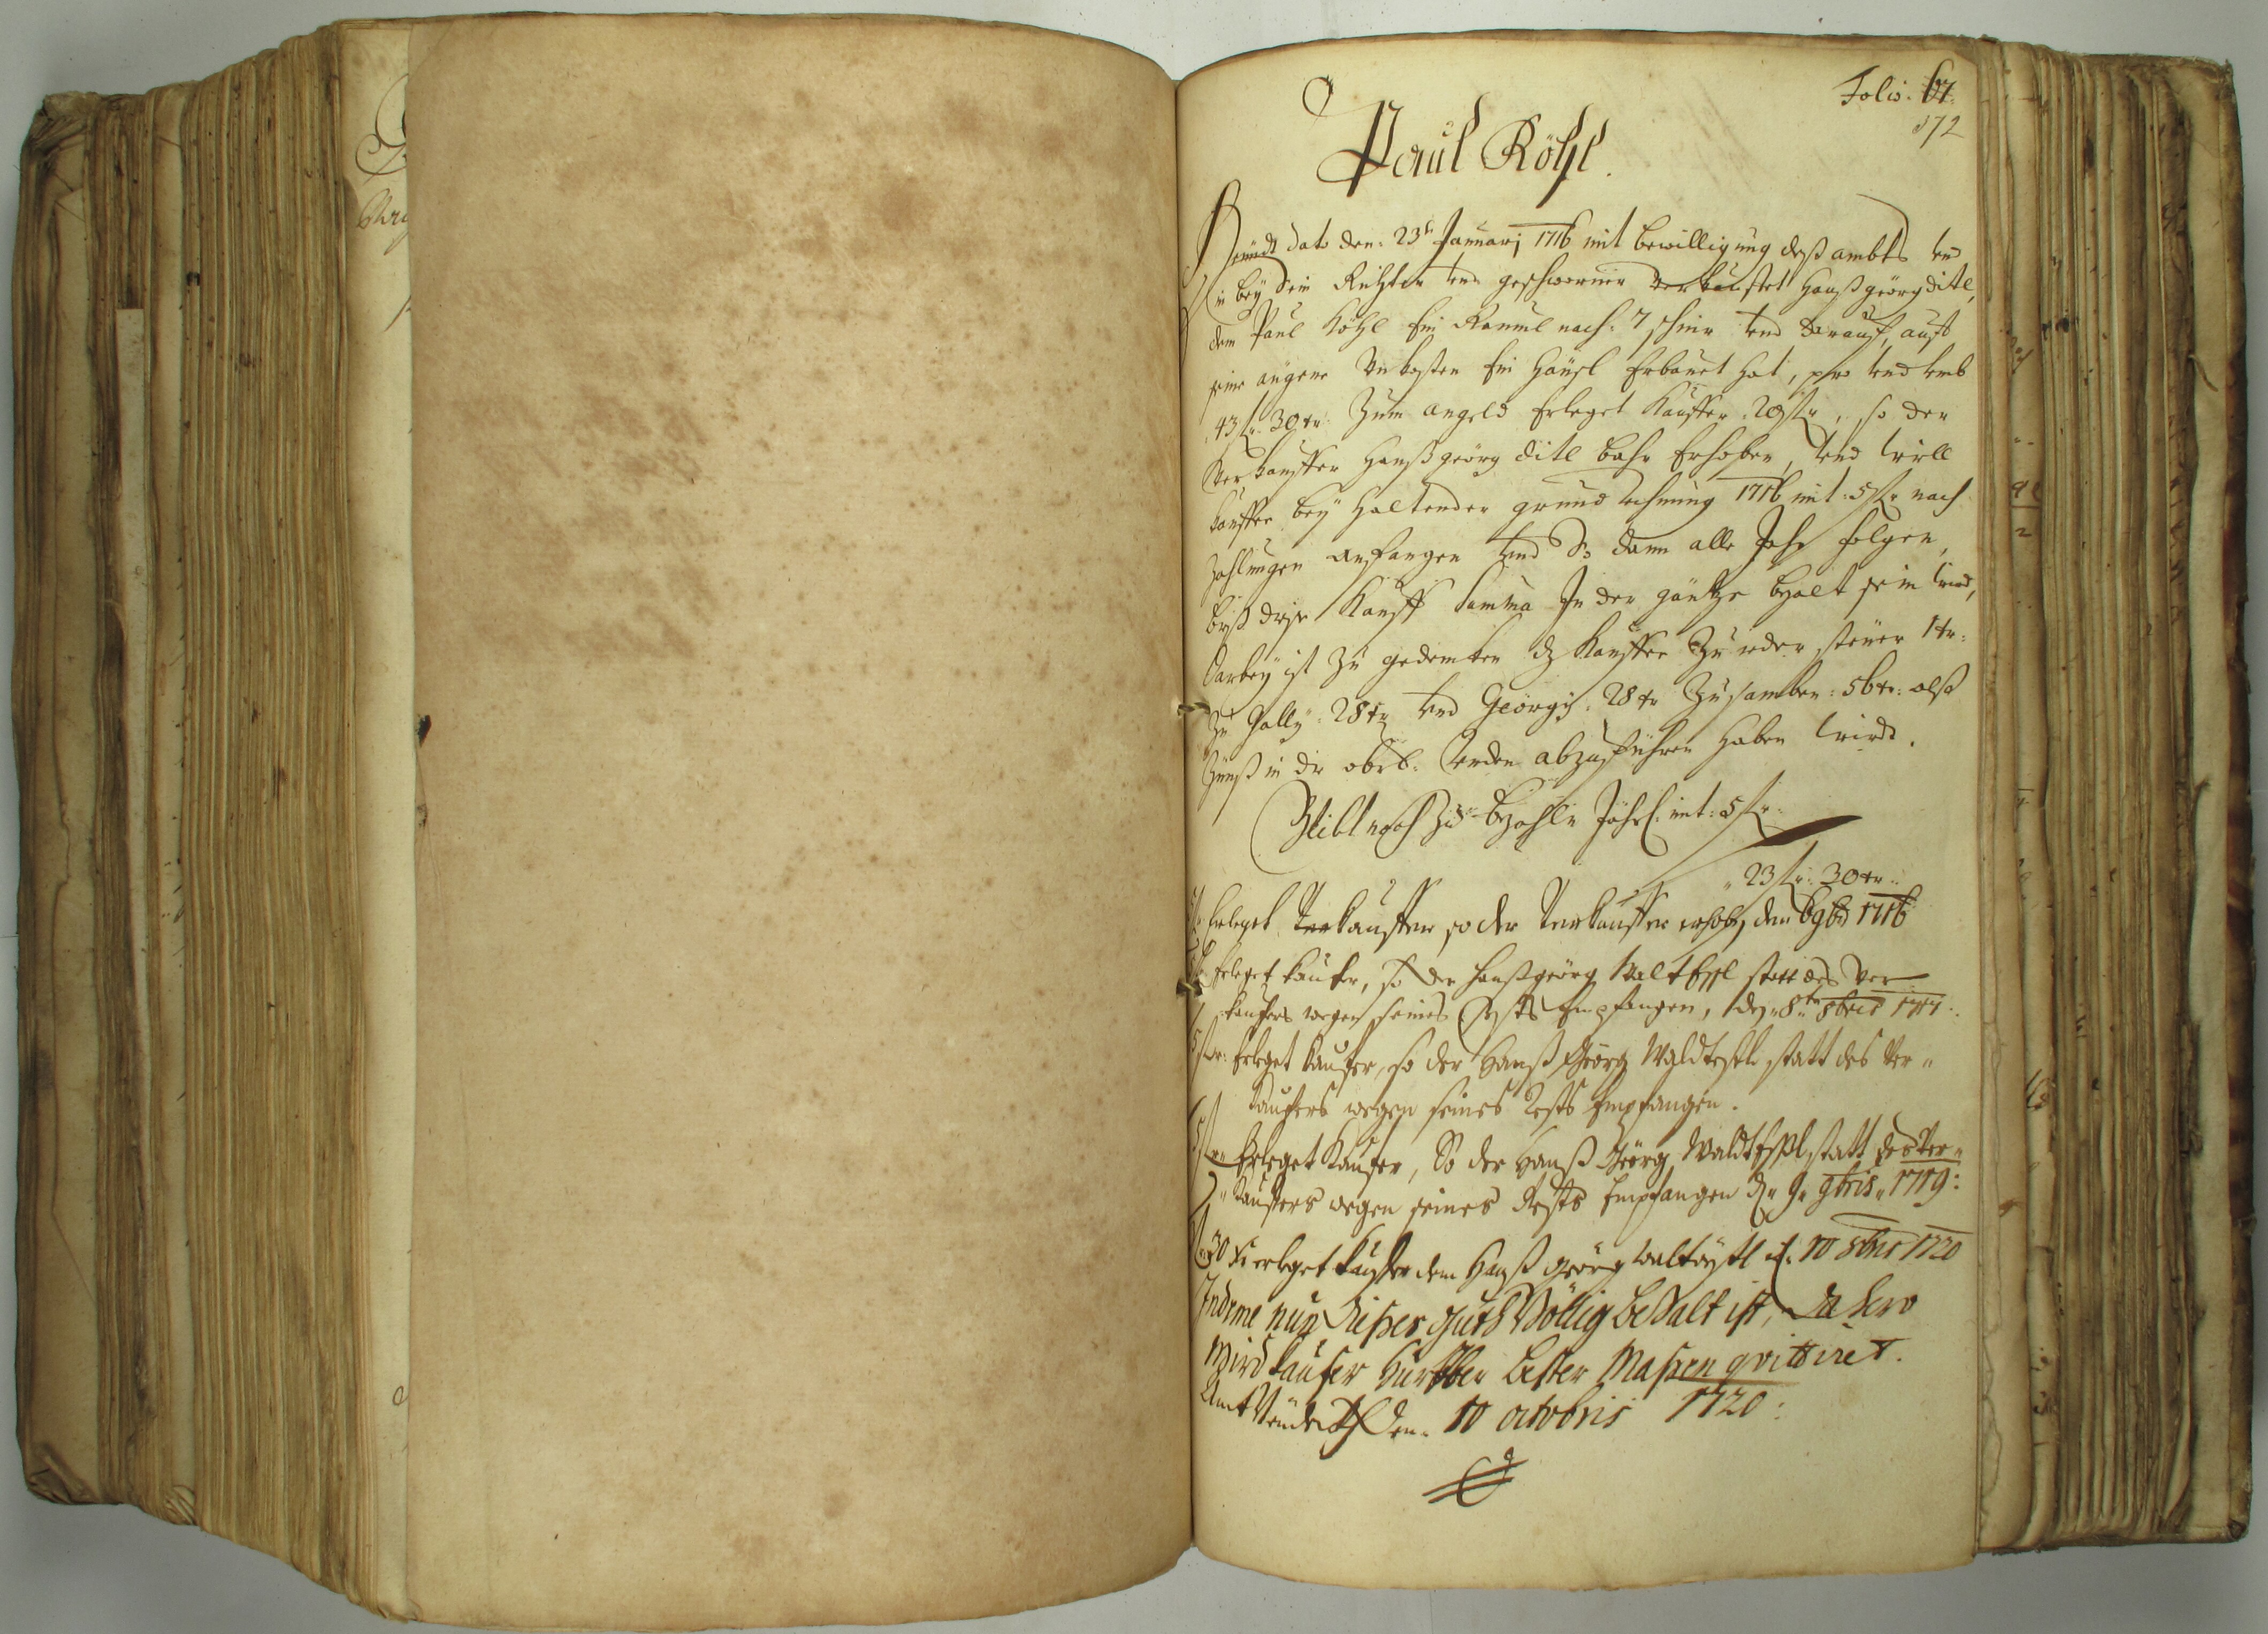 Folio: 67.
172
Paul Köhl.
Heündt dato den: 23t Januarj 1716 mit bewilligung deß ambts vnd
in beÿ sein Richter vnd geschworner verkauffet Hanß geörg ditl,
dem Paul Köhl Ein Raumb nach: 7 vnd darauf, auff
seine aigene Vnkosten Ein Häusl Erbauet hat, pro vnd vmb
43 ß: 30 kr: Zum angeld Erleget Kauffer 20 ß, so der
Verkauffer Hanß geörg ditl bahr Erhoben, vnd will
Kauffer beÿ Haltender grund rechnung 1716 mit: 5 ß: nach
Zahlungen anfangen vnd So dann alle Jahr folgen,
biß dise Kauff Summa In der gäntze bezalt sein wird,
Darbeÿ ist zu gedencken dz Kauffer Zu ieder steüer 1 kr:
Zu Gallÿ: 28 kr vnd Geörgÿ: 28 kr Zusamben: 56 kr: alß
Zünß in die obrk: Renden abzuführen haben wirdt.
Bleibt noch Zu bezahln Jährl: mit: 5 ß:
23 ß: 30 kr:
Erleget Verkauffer so der Verkauffer erhobn den 6 9bris 1716
Erleget Kaufer, so der Hanß georg Waltössl statt des Ver
kaufers wegen seines Rests Empfangen, den 8t 8bris 1717.
5 ß: Erleget Kaufer, so der Hanß Geörg Waldtessl statt des Ver„
Kaufers wegen seines Rests Empfangen.
5 ß„ Erleget Kaufer, So der Hanß Geörg Waldtessl statt des Ver„
„Kauffers wegen seines Rests Empfangen d„ 9„ 9bris„ 1719:
30 kr erleget Kauffer dem Hanß geörg waltössl d: 10 8bris 1720
Indeme nun dießes guth Völlig bezalt ist, Dahero
wird Kaufer hirüber bester Maßen qvittiret.
Amt den. 10 octobris 1720: